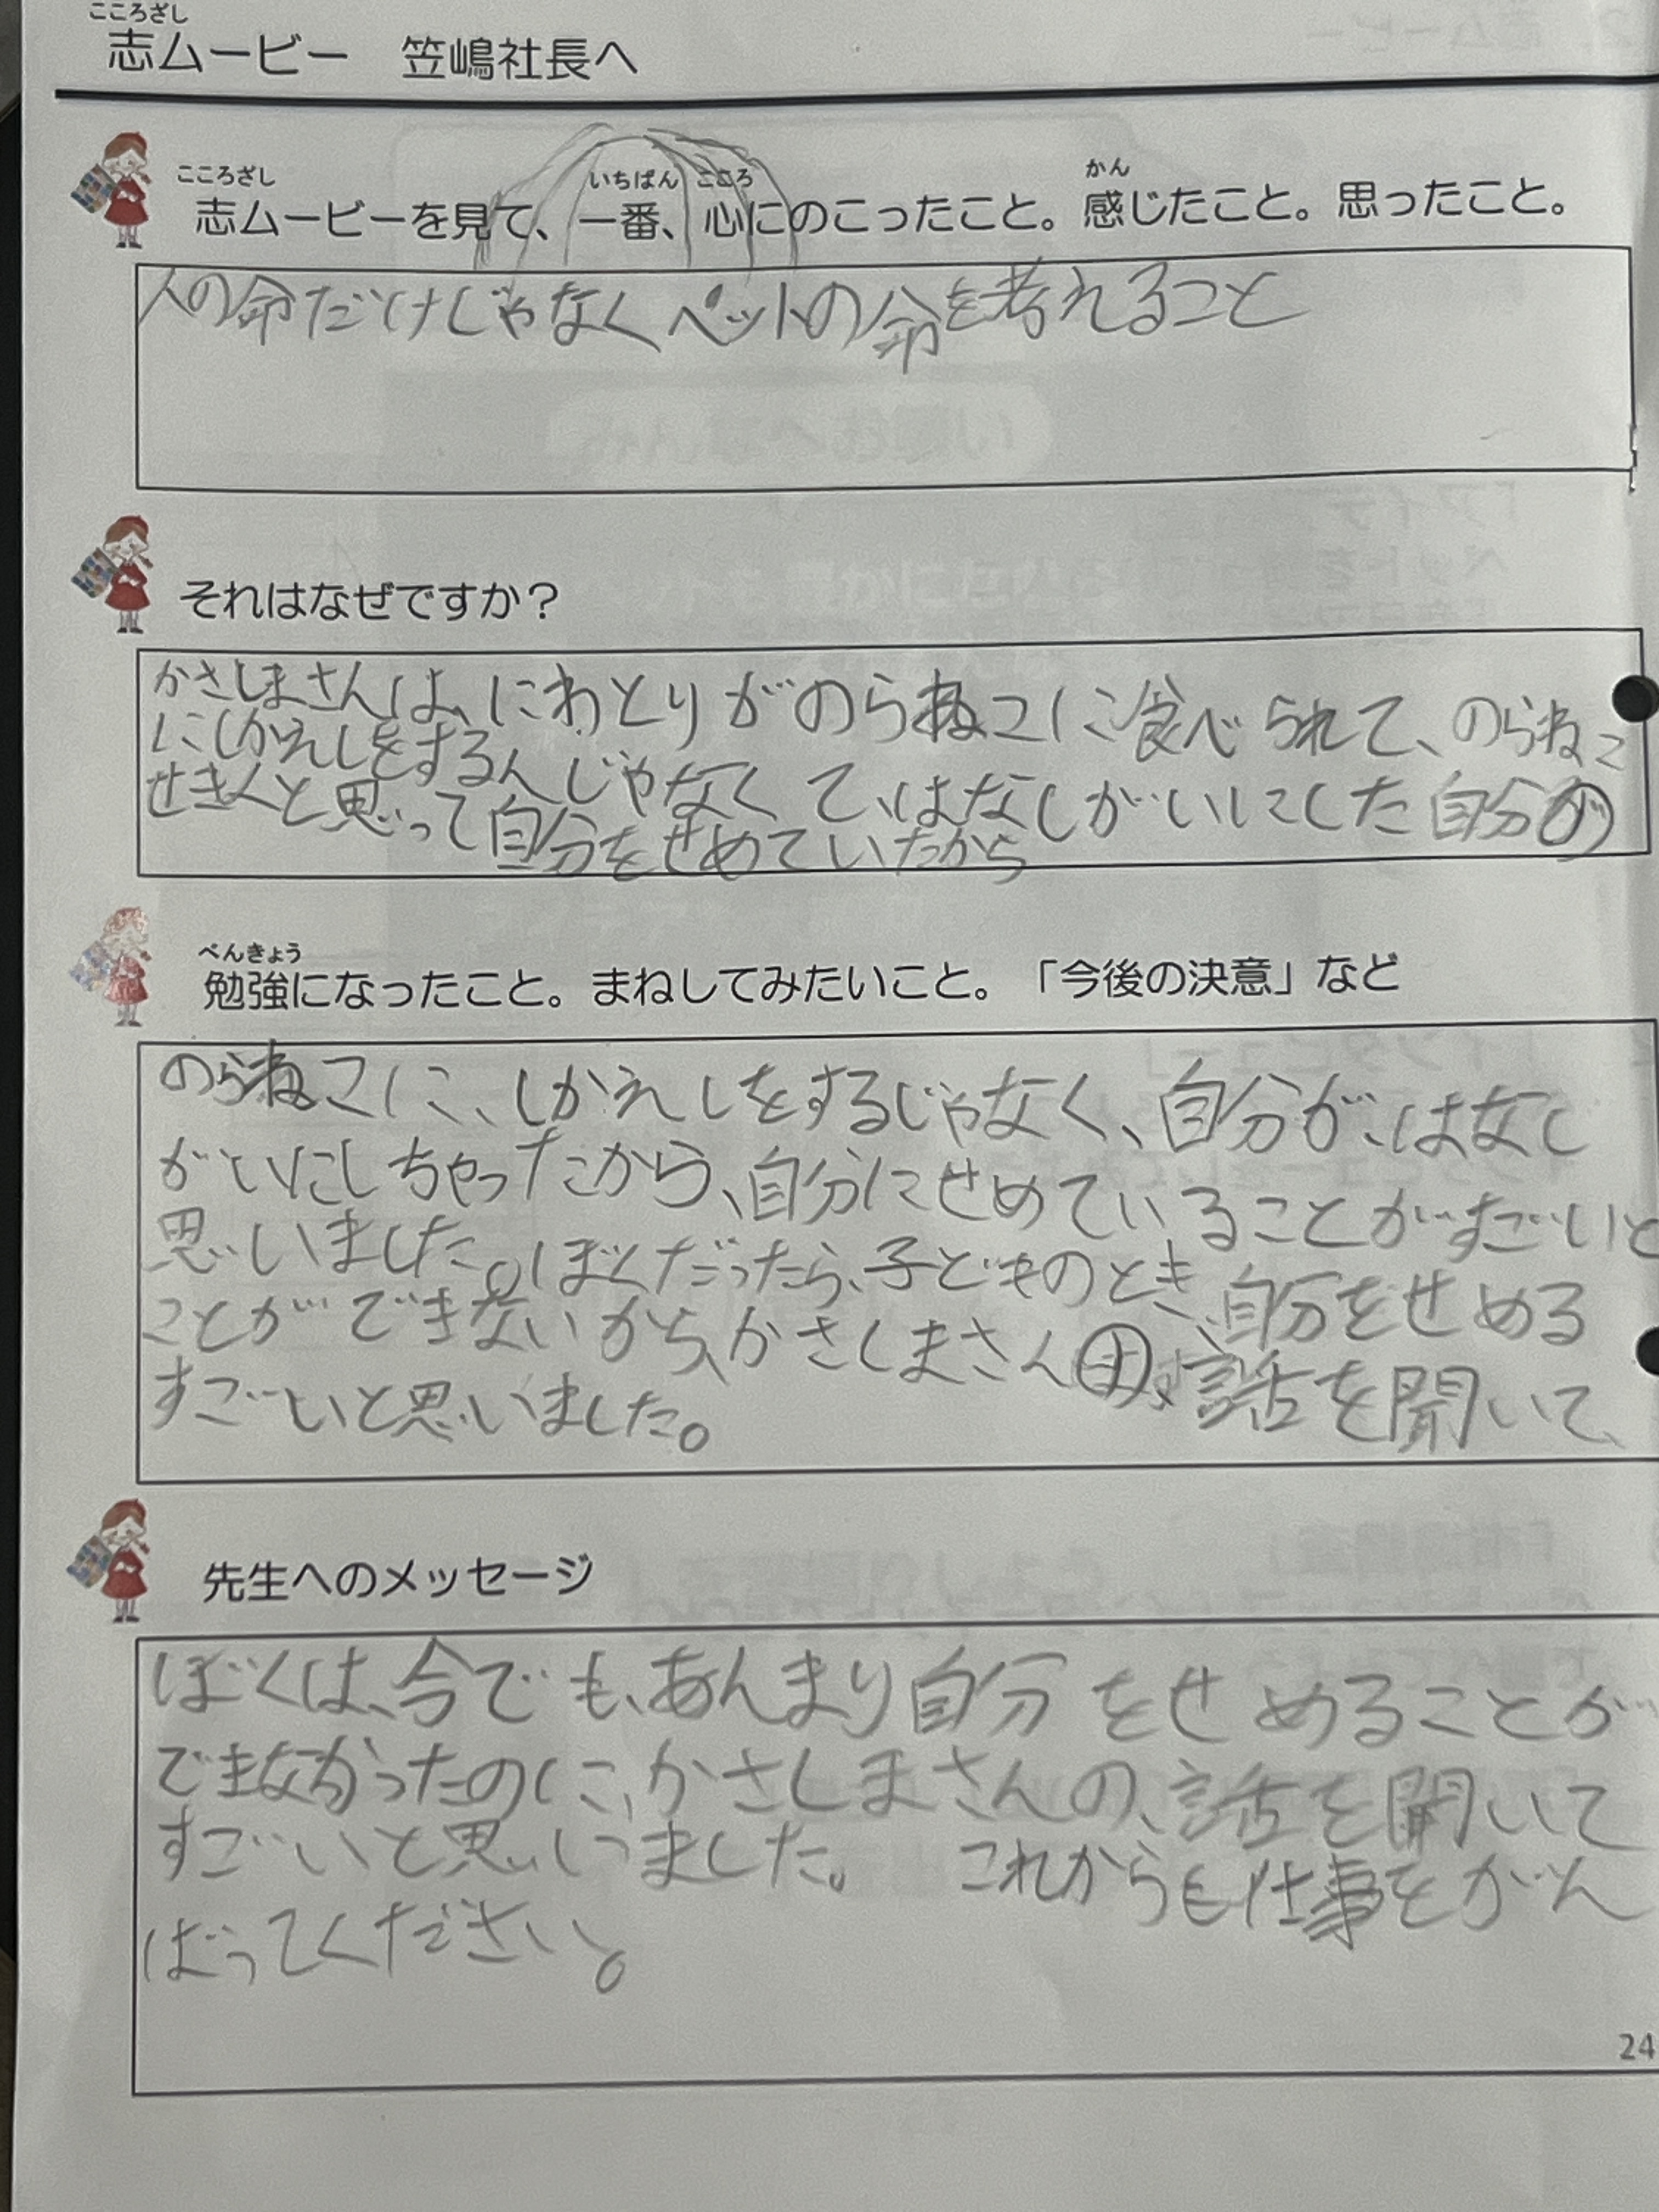 こころざし
志ムービー　笠嶋社長へ
こころざし　いちばん　こころ　かん
志ムービーを見て、一番、心にのこったこと。感じたこと。思ったこと。
人の命だけじゃなくペットの命を考れること
それはなぜですか？
かさしまさんは、にわとりがのらねこに食べられて、のらねこ
にしかえしをするんじゃなくて、はなしがいにした自分の
せきにんと思って自分をせめていたから
べんきょう
勉強になったこと。まねしてみたいこと。「今後の決意」など
のらねこに、しかえしをするじゃなく、自分が、はなし
がいにしちゃったから、自分にせめていることがすごいと
思いました。ぼくだったら、子どものとき、自分をせめる
ことができないから、かさしまさん、話を聞いて、
すごいと思いました。
先生へのメッセージ
ぼくは、今でも、あんまり自分をせめることが
できなかったのに、かさしまさんの、話を聞いて
すごいと思いました。　これからも仕事をがん
ばってください。
24